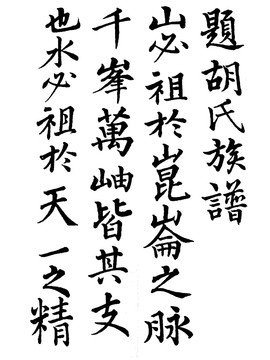 題胡氏族譜
山必祖於崑崙之脉
千峯萬岫皆其支
也水必祖於天一之精